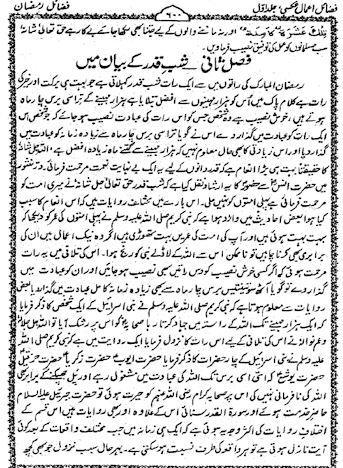 فضائل اعمال عکسی، جلد اول ۶۰۰ فضائل رمضان
تِلْكَ عَشَرَةٌ كَامِلَةٌ اور نہ ماننے والوں کے لیے جتنا بھی لکھا جائے بے کار ہے حق تعالیٰ شانہ
سب مسلمانوں کو عمل کی توفیق نصیب فرمائیں
فصل ثانی شب قدر کے بیان میں
رمضان المبارک کی راتوں میں سے ایک رات شب قدر کہلاتی ہے جو بہت ہی برکت اور خیر کی
رات ہے کلام پاک میں اس کو ہزار مہینوں سے افضل بتلایا ہے ہزار مہینے کے تراسی برس چار ماہ
ہوتے ہیں، خوش نصیب ہے وہ شخص جس کو اس رات کی عبادت نصیب ہو جائے کہ جو شخص اس
ایک رات کو عبادت میں گذار دے اس نے گویا تراسی برس چار ماہ سے زیادہ زمانہ کو عبادت میں
گذار دیا اور اس زیادتی کا بھی حال معلوم نہیں کہ ہزار مہینے سے کتنے ماہ زیادہ افضل ہے، اللہ جل شانہ
کا حقیقتاً بہت ہی بڑا انعام ہے کہ قدر دانوں کے لیے یہ ایک بے نہایت نعمت مرحمت فرمائی، در منثور
میں حضرت انس سے حضور کا یہ ارشاد نقل کیا ہے کہ شب قدر حق تعالیٰ جل شانہ نے میری امت کو
مرحمت فرمائی ہے پہلی امتوں کو نہیں ملی۔ اس بارے میں مختلف روایات ہیں کہ اس انعام کا سبب
کیا ہوا بعض احادیث میں وارد ہوا ہے کہ نبی کریم صلی اللہ علیہ وسلم نے پہلی امتوں کی عمروں کو دیکھا کہ
بہت بہت ہوئی ہیں اور آپ کی امت کی عمریں بہت تھوڑی ہیں اگر وہ نیک اعمال میں ان کی
برابری بھی کرنا چاہیں تو ناممکن اس سے اللہ کے لاڈلے نبی کو رنج ہوا۔ اس کی تلافی میں یہ رات
مرحمت ہوئی کہ اگر کسی خوش نصیب کو دس راتیں بھی نصیب ہو جائیں اور ان کو عبادت میں
گذار دے تو گویا آٹھ سو تینتیس برس چار ماہ سے بھی زیادہ زمانہ کامل عبادت میں گذار دیا بعض
روایات سے معلوم ہوتا ہے کہ نبی کریم صلی اللہ علیہ وسلم نے بنی اسرائیل کے ایک شخص کا ذکر فرمایا
کہ ایک ہزار مہینے تک اللہ کے راستہ میں جہاد کرتا رہا صحابہ کو اس پر رشک آیا تو اللہ جل جلالہ
وعم نوالہ نے اس کی تلافی کے لیے اس رات کا نزول فرمایا ایک روایت میں ہے کہ نبی کریم صلی اللہ
علیہ وسلم نے بنی اسرائیل کے چار حضرات کا ذکر فرمایا حضرت ایوب حضرت زکریا حضرت حزقیل
حضرت یوشع کہ اسی اسی برس تک اللہ کی عبادت میں مشغول رہے اور پل جھپکنے کے برابر بھی
اللہ کی نافرمانی نہیں کی اس پر صحابہ کرام رضی اللہ عنہم کو حیرت ہوئی تو حضرت جبریل علیہ السلام
حاضر خدمت ہوئے اور سورۃ القدر سنائی اس کے علاوہ اور بھی روایات ہیں اس قسم کے
اختلاف روایات کی اکثر وجہ یہ ہوتی ہے کہ ایک ہی زمانہ میں جب مختلف واقعات کے بعد کوئی
آیت نازل ہوتی ہے تو ہر واقعہ کی طرف نسبت ہو سکتی ہے۔ بہر حال سبب نزول جو بھی کچھ